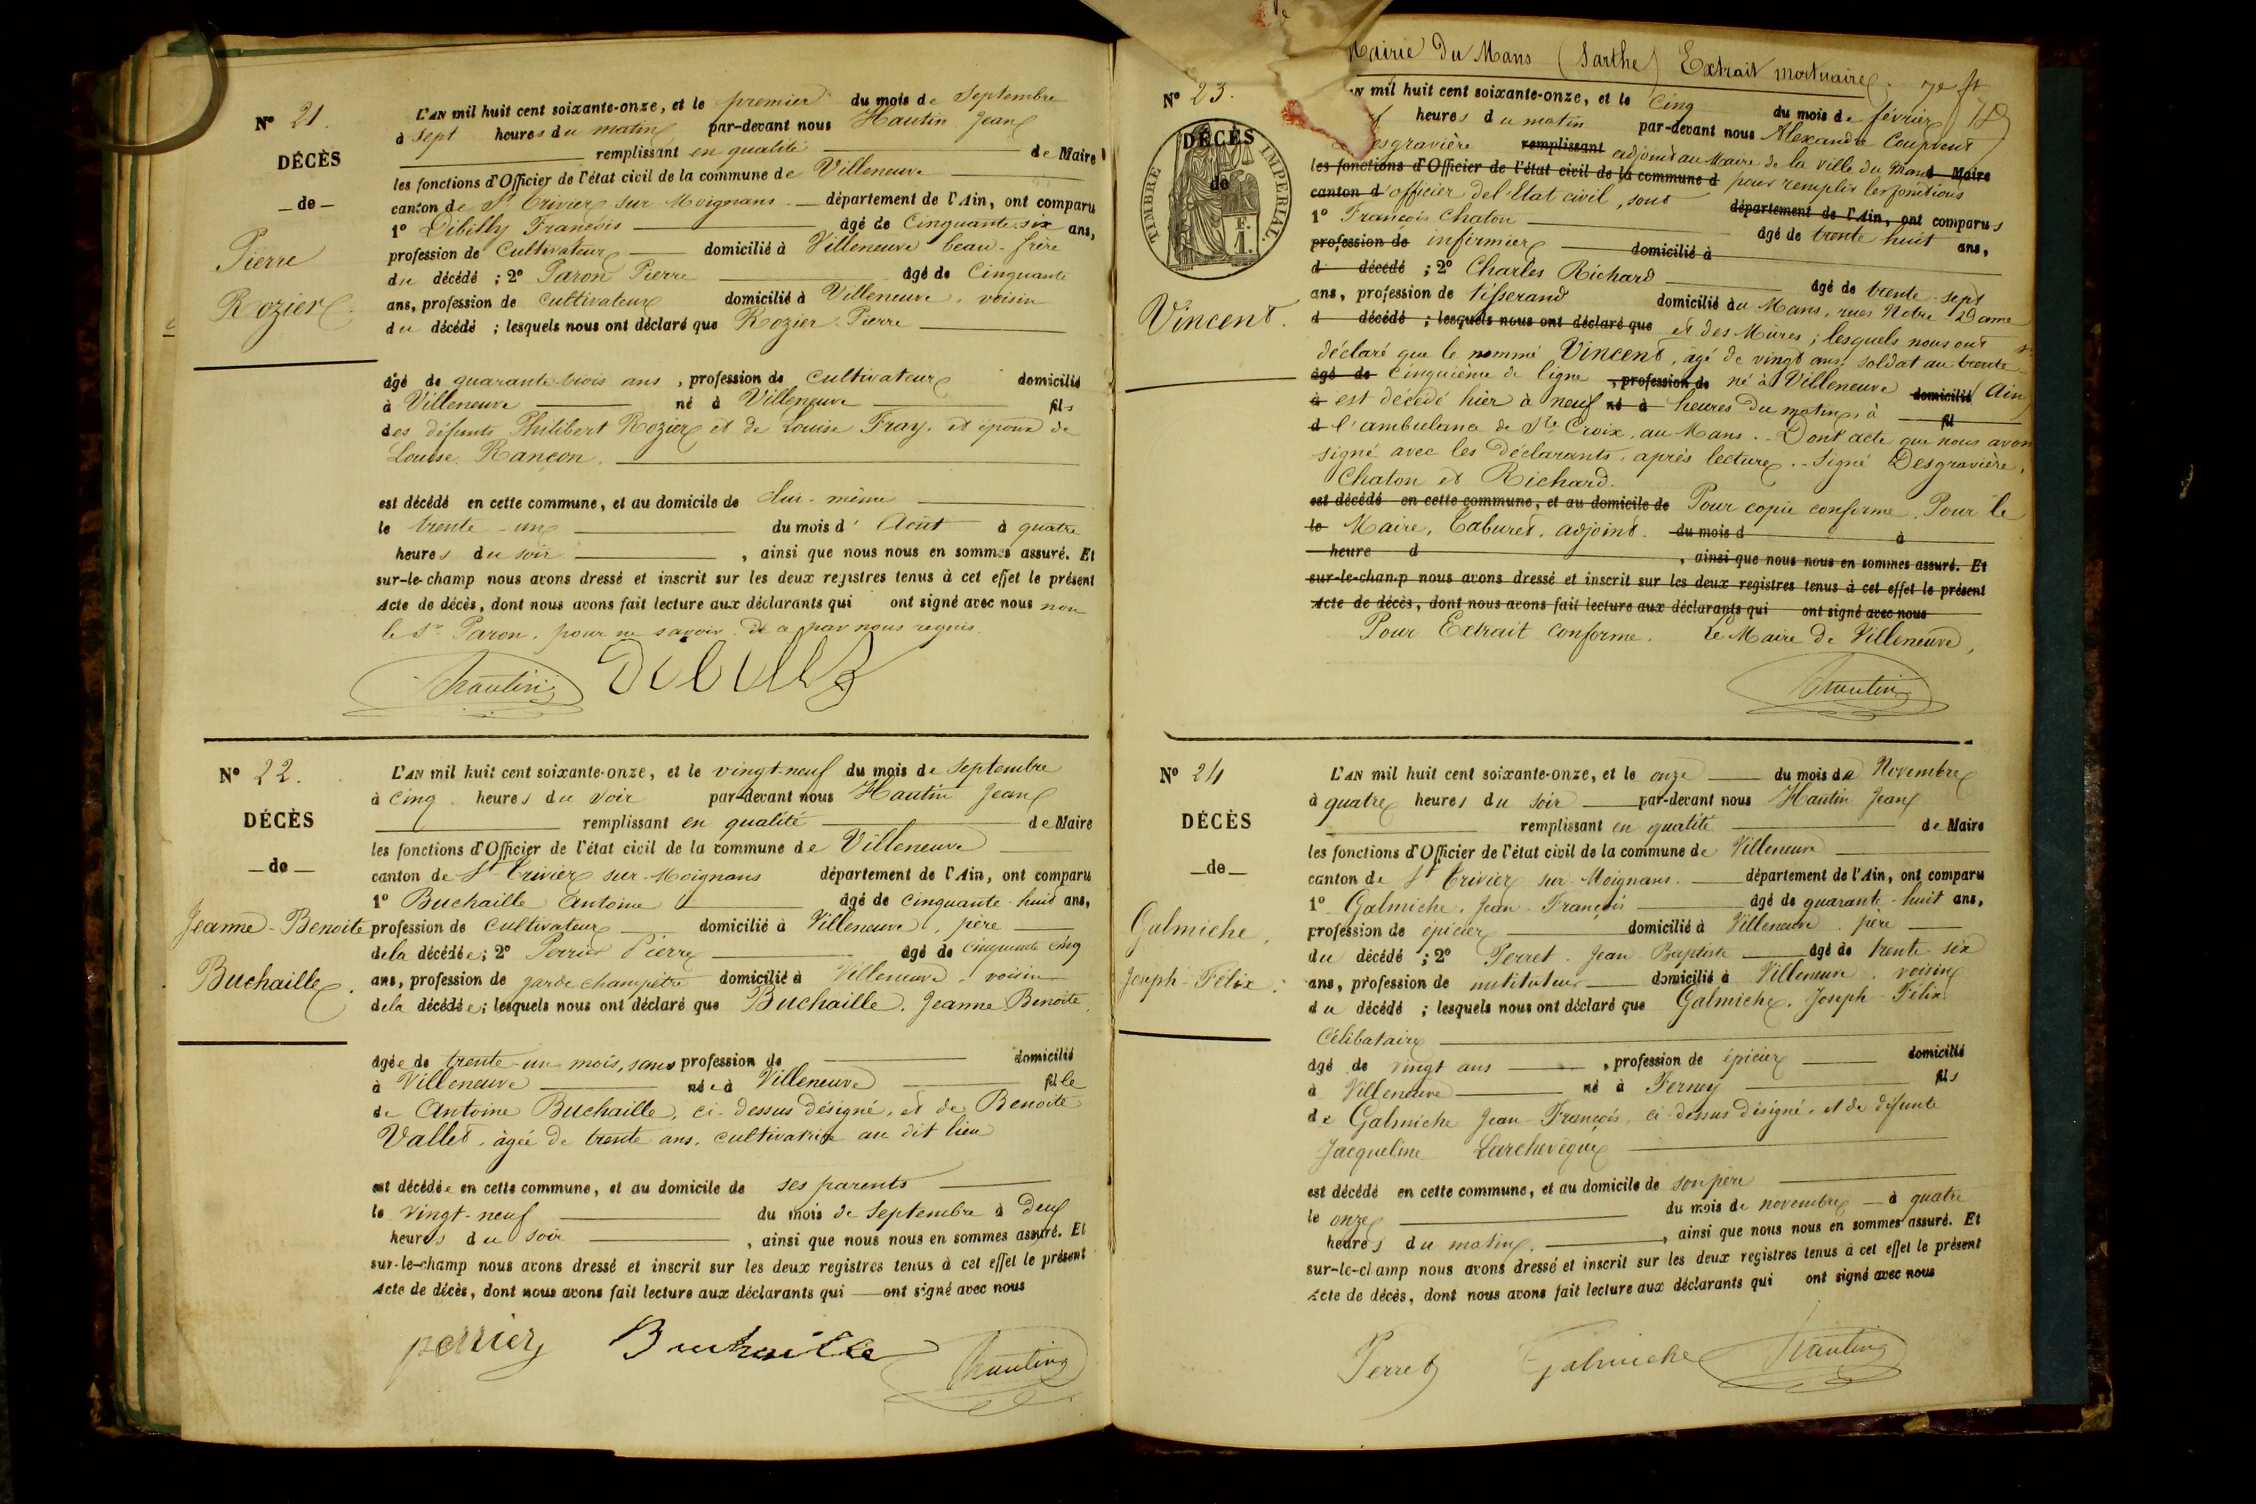 N° 21.
DÉCÈS
de
Pierre
Rozier
L'AN mil huit cent soixante-onze, et le premier du mois de Septembre
à Sept heures du matin par-devant nous Hautin Jean
remplissant en qualité de Maire
les fonctions d'Officier de l'état civil de la commune de Villeneuve
canton de St Trivier sur Moignans département de l'Ain, ont comparu
1° Dibilly François âgé de Cinquante six ans,
profession de Cultivateur domicilié à Villeneuve beau-frère
du décédé ; 2° Paron Pierre âgé de Cinquante
ans, profession de Cultivateur domicilié à Villeneuve, voisin
du décédé ; lesquels nous ont déclaré que Rozier Pierre
âgé de quarante-trois ans, profession de Cultivateur domicilié
à Villeneuve né à Villeneuve fils
des défunts Philibert Rozier et de Louise Fray, et époux de
Louise Rançon.
est décédé en cette commune, et au domicile de lui-même
le trente-un du mois d'Août à quatre
heures du soir, ainsi que nous nous en sommes assuré. Et
sur-le-champ nous avons dressé et inscrit sur les deux registres tenus à cet effet le présent
Acte de décès, dont nous avons fait lecture aux déclarants qui ont signé avec nous non
le Sr Paron, pour ne savoir, de ce par nous requis.
Hautin Dibilly
N° 22.
DÉCÈS
de
Jeanne-Benoite
Buchaille.
L'AN mil huit cent soixante-onze, et le vingt-neuf du mois de Septembre
à Cinq heures du soir par-devant nous Hautin Jean
remplissant en qualité de Maire
les fonctions d'Officier de l'état civil de la commune de Villeneuve
canton de St Trivier sur Moignans département de l'Ain, ont comparu
1° Buchaille Antoine âgé de cinquante-huit ans,
profession de Cultivateur domicilié à Villeneuve, père
de la décédée; 2° Perrier Pierre âgé de cinquante cinq
ans, profession de garde champêtre domicilié à Villeneuve, voisin
de la décédée; lesquels nous ont déclaré que Buchaille, Jeanne Benoite,
âgée de trente-un mois, sans profession de domicilié
à Villeneuve née à Villeneuve fille
de Antoine Buchaille, ci-dessus désigné, et de Benoite
Vallet, âgée de trente ans, cultivatrice au dit lieu
est décédée en cette commune, et au domicile de ses parents
le vingt-neuf du mois de Septembre à Deux
heures du soir, ainsi que nous nous en sommes assuré. Et
sur-le-champ nous avons dressé et inscrit sur les deux registres tenus à cet effet le présent
Acte de décès, dont nous avons fait lecture aux déclarants qui ont signé avec nous
perrier Buchaille Hautin
Mairie du Mans (Sarthe) Extrait mortuaire
N° 23.
DÉCÈS
de
TIMBRE IMPERIAL.
Vincent.
AN mil huit cent soixante-onze, et le Cinq du mois de février
heures du matin par-devant nous Alexandre Couprent
Desgravière remplissant adjoint au Maire de la ville du Mans Maire
les fonctions d'Officier de l'état civil de la commune d pour remplir les fonctions
canton d'officier de l'Etat civil, sont département de l'Ain, ont comparus
1° François Chaton âgé de trente huit ans,
profession de infirmier domicilié à
d décédé ; 2° Charles Richard âgé de trente-sept
ans, profession de tisserand domicilié au Mans, rues Notre Dame
d décédé ; lesquels nous ont déclaré que et des Mûres; lesquels nous ont
déclaré que le nommé Vincent, âgé de vingt ans, soldat au trente
âgé de Cinquième de ligne, profession de né à Villeneuve domicilié (Ain)
à est décédé hier à neuf né à heures du matin, à fil
d l'ambulance de Ste Croix, au Mans. - Dont acte que nous avons
signé avec les déclarants, après lecture. - Signé Desgravière,
Chaton et Richard.
est décédé en cette commune, et au domicile de Pour copie conforme. Pour le
le Maire, Caburet, adjoint. du mois d à
heure d, ainsi que nous nous en sommes assuré. Et
sur-le-champ nous avons dressé et inscrit sur les deux registres tenus à cet effet le présent
Acte de décès, dont nous avons fait lecture aux déclarants qui ont signé avec nous
Pour Extrait conforme. Le Maire de Villeneuve,
Hautin
N° 24
DÉCÈS
de
Galmiche,
Joseph-Félix.
L'AN mil huit cent soixante-onze, et le onze du mois de Novembre
à quatre heures du soir par-devant nous Hautin Jean
remplissant en qualité de Maire
les fonctions d'Officier de l'état civil de la commune de Villeneuve
canton de St Trivier sur Moignans. département de l'Ain, ont comparu
1° Galmiche, Jean François âgé de quarante-huit ans,
profession de épicier domicilié à Villeneuve, père
du décédé ; 2° Perret Jean Baptiste âgé de trente-six
ans, profession de instituteur domicilié à Villeneuve, voisin
du décédé ; lesquels nous ont déclaré que Galmiche, Joseph-Félix
Célibataire
âgé de vingt ans, profession de épicier domicilié
à Villeneuve né à Ferney fils
de Galmiche Jean-François, ci-dessus désigné, et de défunte
Jacqueline Larchevêque
est décédé en cette commune, et au domicile de son père
le onze du mois de novembre à quatre
heures du matin, ainsi que nous nous en sommes assuré. Et
sur-le-champ nous avons dressé et inscrit sur les deux registres tenus à cet effet le présent
Acte de décès, dont nous avons fait lecture aux déclarants qui ont signé avec nous
Perret Galmiche Hautin